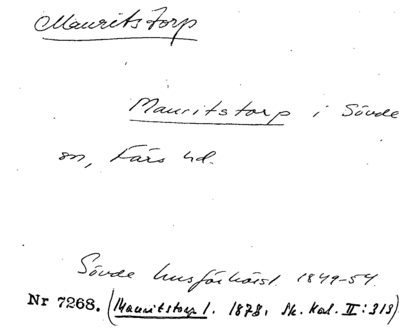 Mauritstorp
Mauritstorp i Sövde
sn, Färs hd.
Sövde husförhörsl. 1849-54.
Nr 7268. (Mauritstorp 1. 1878, Sk. Kal. II:313)